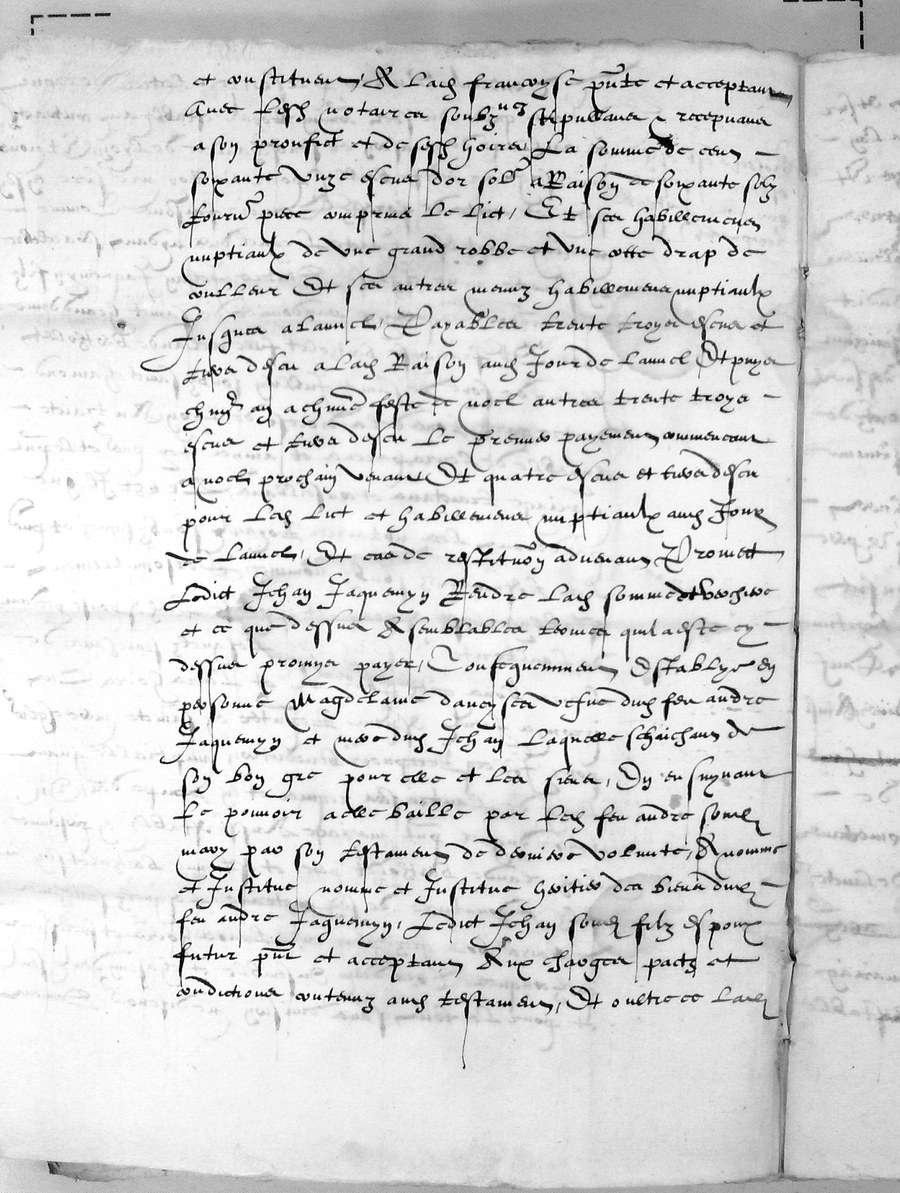 et constituent, A lad francoyse pnte et acceptant
Avec lesd notaires soubz nez stipullans & recepvans
a son prouffict et de sesd hoires La somme de cent
soixante unze escus d'or sol a Raison de soixante solz
tourn piece comprins le lict, Et ses habillemens
nuptiaulx de une grand robbe et une cotte drap de
coulleur Et ses autres menuz habillemens nuptiaulx
Jusques a lanncl, Payables trente troys escus et
tiers descu a lad Raison aud Jour de lanncl Et puys
en ung an a chune feste de noel autres trente troys
escus et tiers descu le premier payement commencant
a noel prochain venant Et quatre escus et tiers descu
pour lesd lict et habillemens nuptiaulx aud Jour
de lanncl, Et cas de restitution advenant Promect
Ledict Jehan Jaquemyn Rendre lad somme
et ce que dessus A semblables termes quil a este cy
dessus promys payer, Consequemment Establye en
personne Magdelaine dancysses vefve dud feu andre
Jaquemyn et mere dud Jehan Laquelle saichant de
son bon gre pour elle et les siens, En ensuyvant
le pouvoir a elle baille par led feu andre sond
mary par son testament de derniere volunte, A nomme
et Institue nomme et Institue heritier des biens dud
feu andre Jaquemyn, Ledict Jehan sond filz espoux
futur pnt et acceptant Aux charges pactz et
condictions contenuz aud testament, Et oultre ce lad